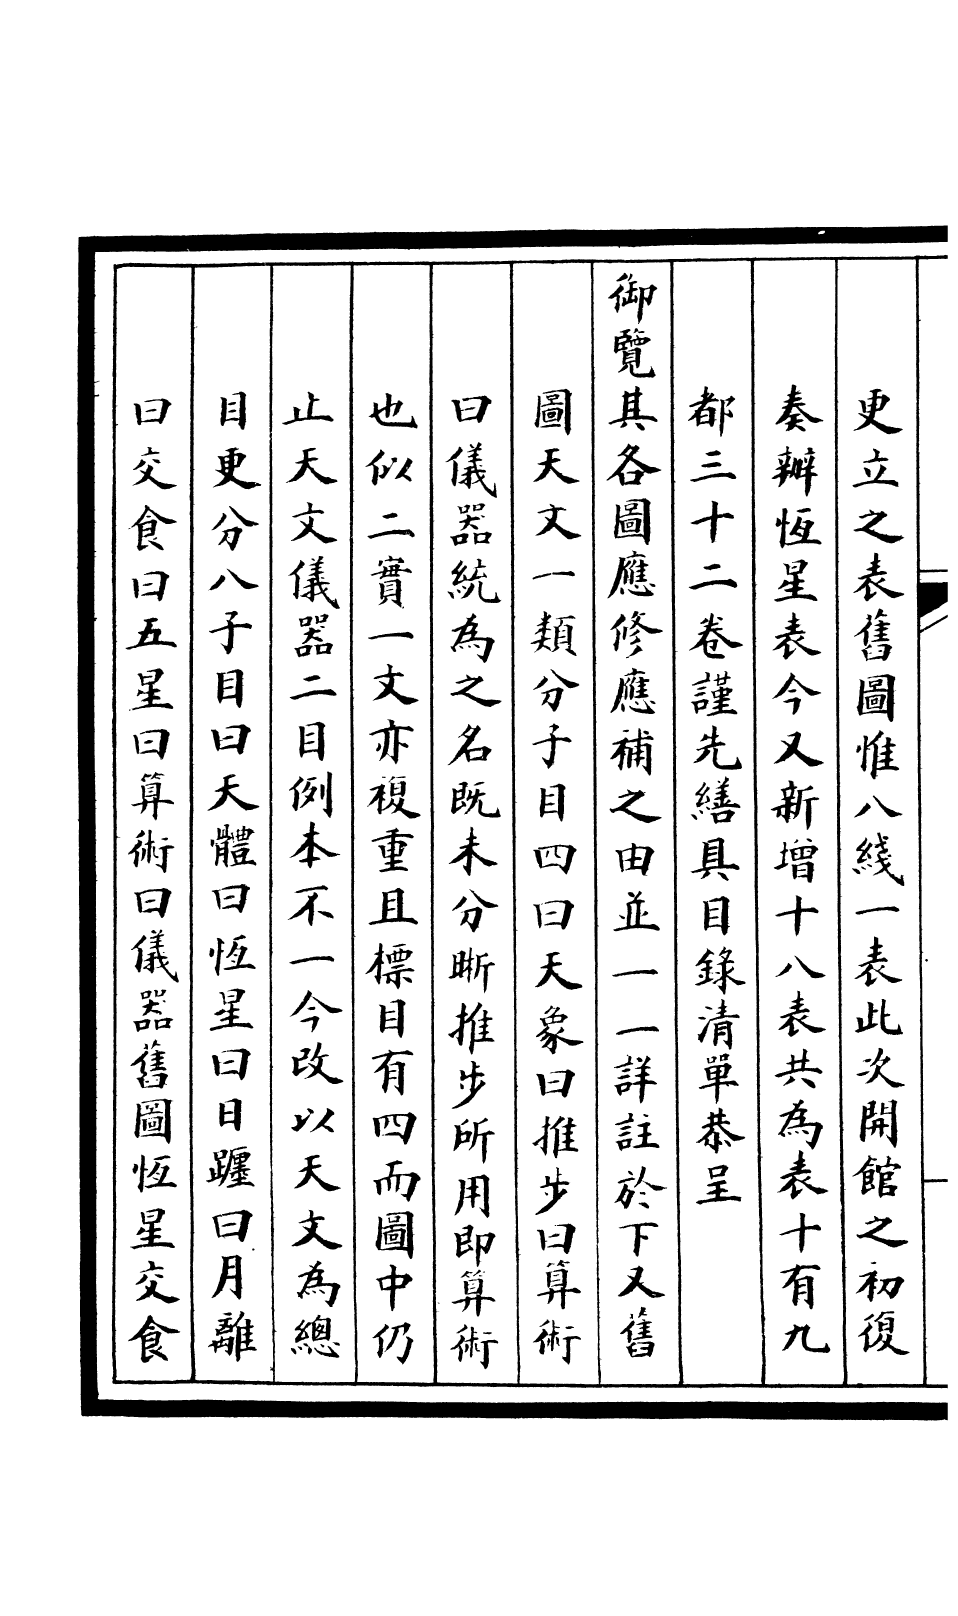 更立之表舊圖惟八綫一表此次開館之初復
奏辦恆星表今又新增十八表共為表十有九
都三十二卷謹先繕具目錄清單恭呈
御覽其各圖應修應補之由並一一詳註於下又舊
圖天文一類分子目四曰天象曰推步曰算術
曰儀器統為之名既未分晣推步所用即算術
也似二實一文亦複重且標目有四而圖中仍
止天文儀器二目例本不一今改以天文為總
目更分八子目曰天體曰恆星曰日躔曰月離
曰交食曰五星曰算術曰儀器舊圖恆星交食